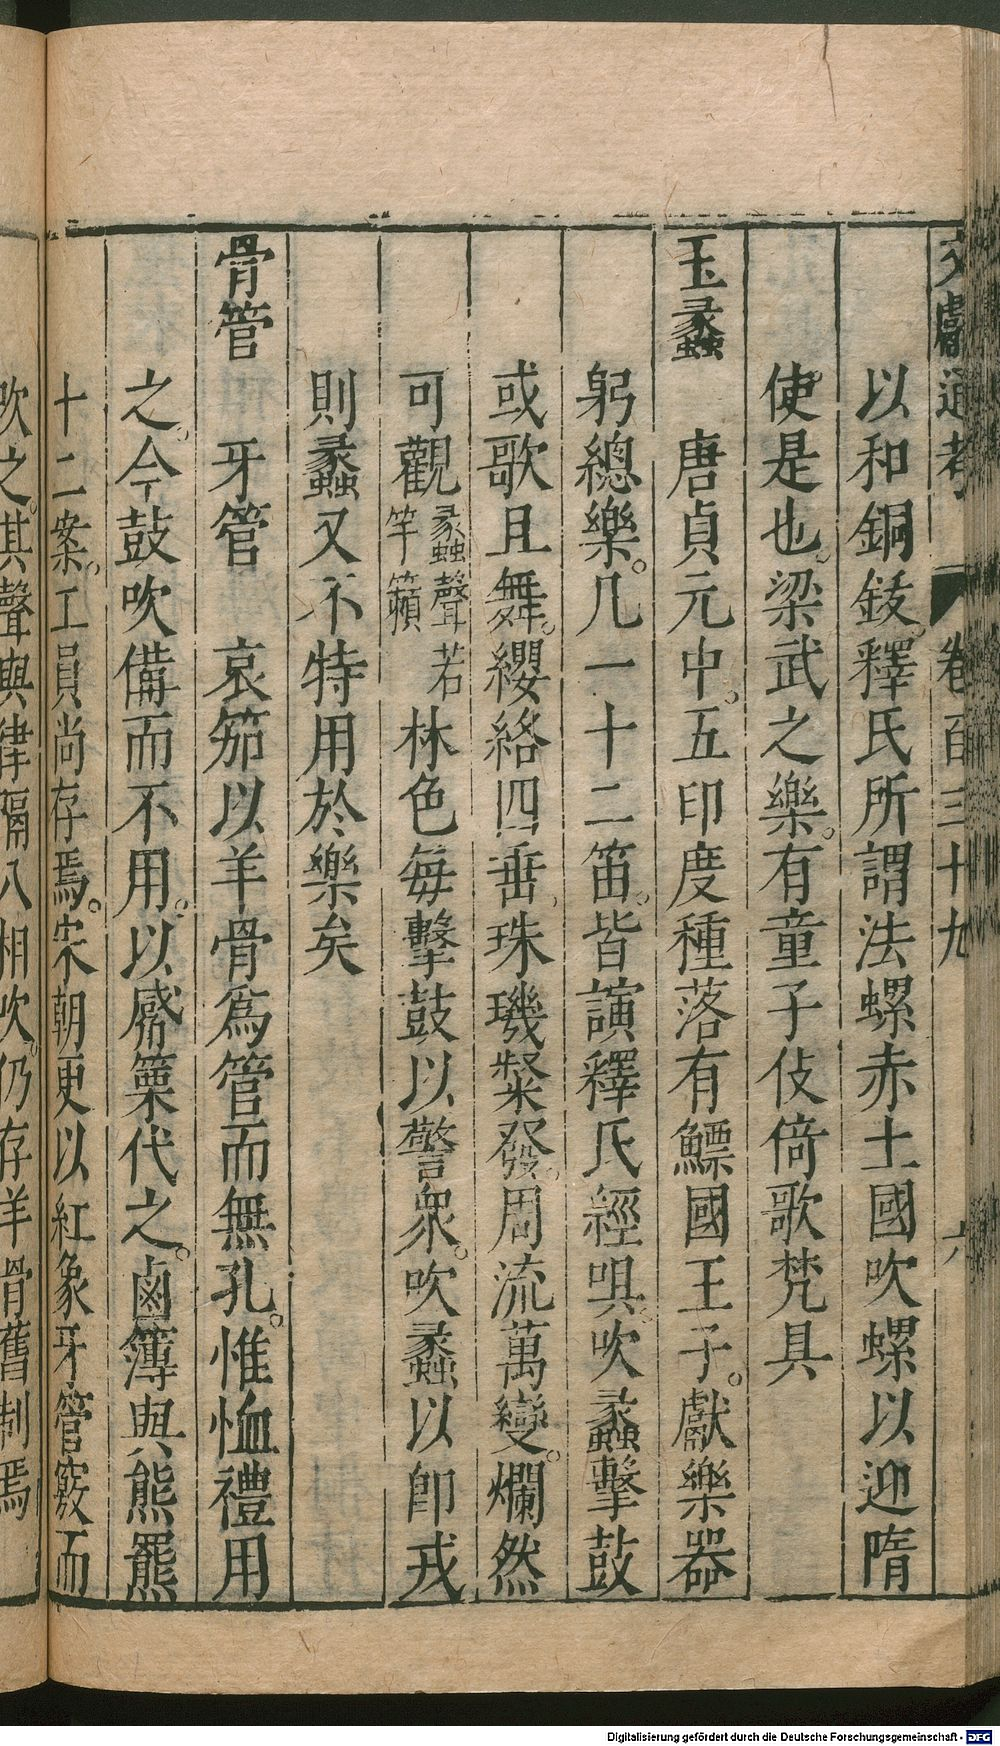 文獻通考 卷百三十九 六
以和銅鈸釋氏所謂法螺赤土國吹螺以迎隋
使是也梁武之樂有童子伎倚歌梵具
玉蠡 唐貞元中五印度種落有鰾國王子獻樂器
躬總樂几一十二笛皆演釋氏經咀吹蠡擊鼓
或歌且舞纓絡四垂珠璣粲發周流萬變爛然
可觀蠡聲若竽籟林色每擊鼓以警衆吹蠡以卽戎
則蠡又不特用於樂矣
骨管 牙管 哀笳以羊骨爲管而無孔惟恤禮用
之今鼓吹備而不用以觱篥代之鹵簿與熊羆
十二案工員尚存焉宋朝更以紅象牙管竅而
吹之其聲與律隔八相吹仍存羊骨舊制焉
Digitalisierung gefördert durch die Deutsche Forschungsgemeinschaft - DFG